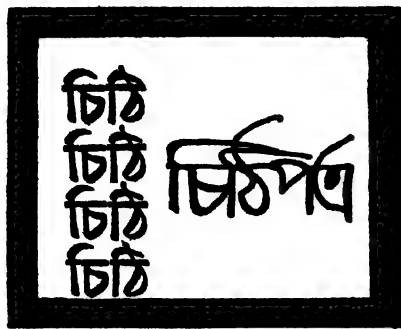 চিঠি
চিঠি
চিঠি
চিঠি
চিঠিপত্র